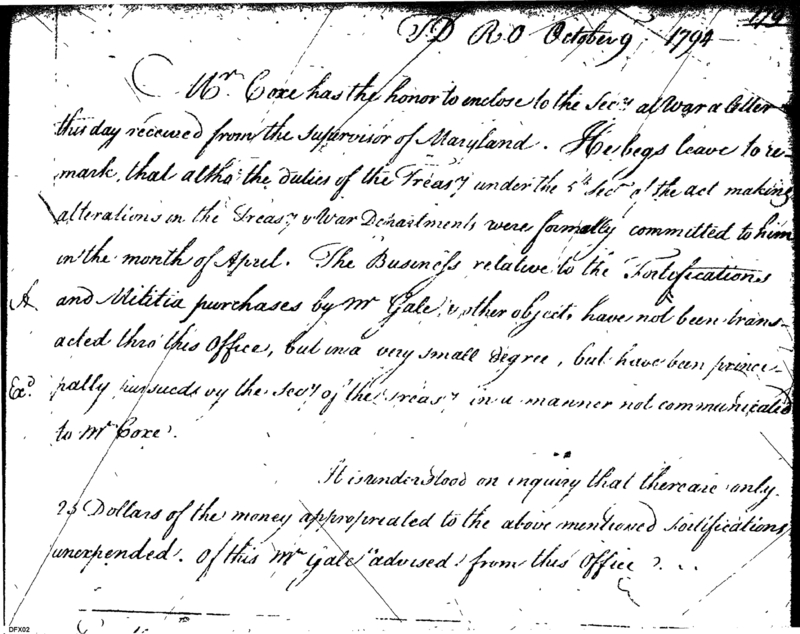 TD RO October 9 1794
Mr. Coxe has the honor to enclose to the Secy at War a letter
this day received from the Supervisor of Maryland. He begs leave to re-
mark, that altho' the duties of the Treasy under the 5th Secn of the act making
alterations in the Treasy & War Departments were formally committed to him
in the month of April. The Business relative to the Fortifications
A and Militia purchases by Mr Gale, & other objects have not been trans-
acted thro this Office, but in a very small degree, but have been princi-
Exd. pally pursued by the Secy of the Treasy in a manner not communicated
to Mr Coxe.
It is understood on inquiry that there are only
25 Dollars of the money appropreated to the above mentioned Fortifications
unexpended. Of this Mr Gale advised from this Office
DFX02